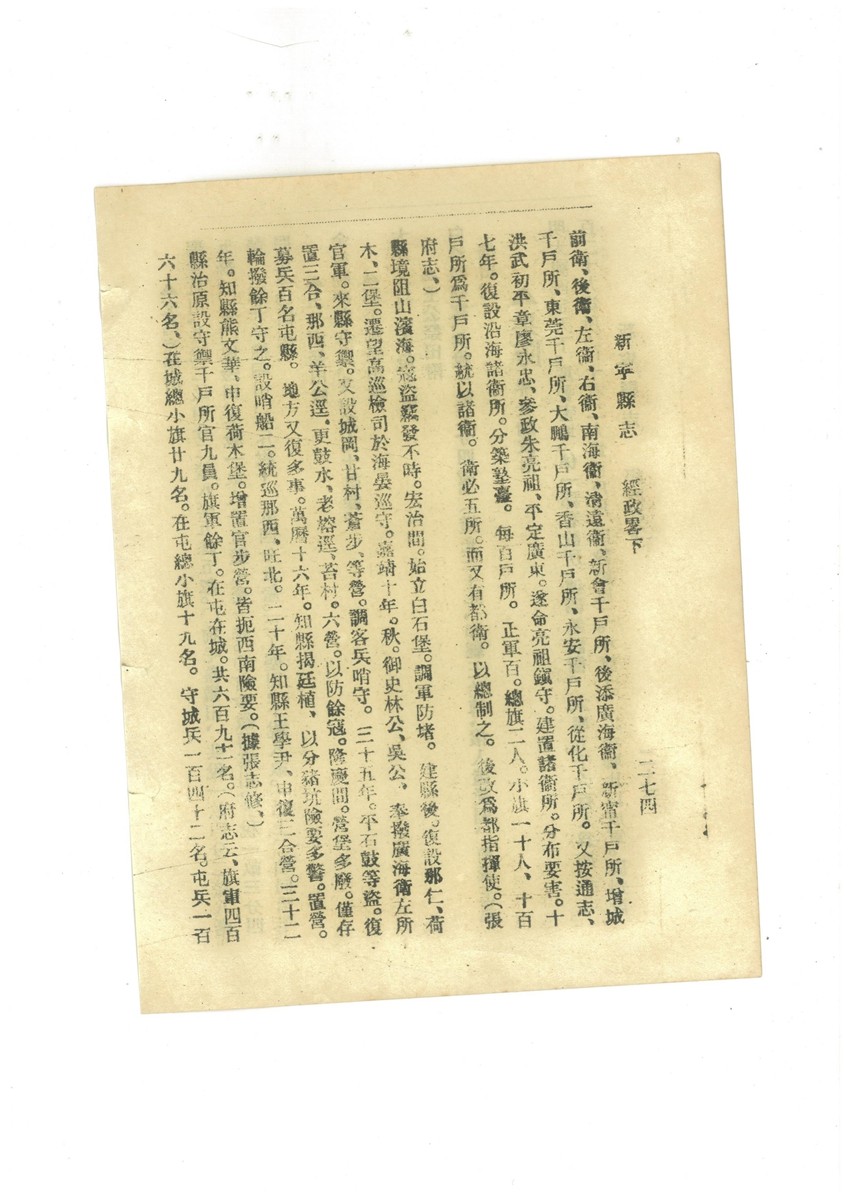 新寧縣志　經政畧下　二七四
前衛、後衛、左衛、右衛、南海衛、清遠衛、新會千戶所、後添廣海衛、新寧千戶所、增城
千戶所、東莞千戶所、大鵬千戶所、香山千戶所、永安千戶所、從化千戶所。又按通志、
洪武初平章廖永忠、參政朱亮祖、平定廣東。遂命亮祖鎮守。建置諸衛所。分布要害。十
七年。復設沿海諸衛所。分築墪臺。每百戶所。正軍百。總旗二人。小旗一十人、十百
戶所爲千戶所。統以諸衛。衛必五所。而又有都衛。以總制之。後改爲都指揮使。（張
府志、）
縣境阻山濱海。寇盜竊發不時。宏治間。始立白石堡。調軍防堵。建縣後。復設那仁、荷
木、二堡。遷望高巡檢司於海晏巡守。嘉靖十年。秋。御史林公、吳公、奉撥廣海衛左所
官軍。來縣守禦。又設城岡、甘村、蒼步、等營。調客兵哨守。三十五年。平石鼓等盜。復
置三合、那西、羊公逕、更鼓水、老榕逕、苔村。六營。以防餘寇。隆慶間。營堡多廢。僅存
募兵百名屯縣。地方又復多事。萬曆十六年。知縣揭廷植、以分豬坑險要多警。置營。
輪撥餘丁守之。設哨船二。統巡那西、旺北。二十年。知縣王學尹、申復三合營。三十二
年。知縣熊文華、申復荷木堡。增置官步營。皆扼西南險要。（據張志修、）
縣治原設守禦千戶所官九員。旗軍餘丁。在屯在城。共六百九十一名。（府志云、旗軍四百
六十六名、）在城總小旗廿九名。在屯總小旗十九名。守城兵一百四十二名。屯兵一百